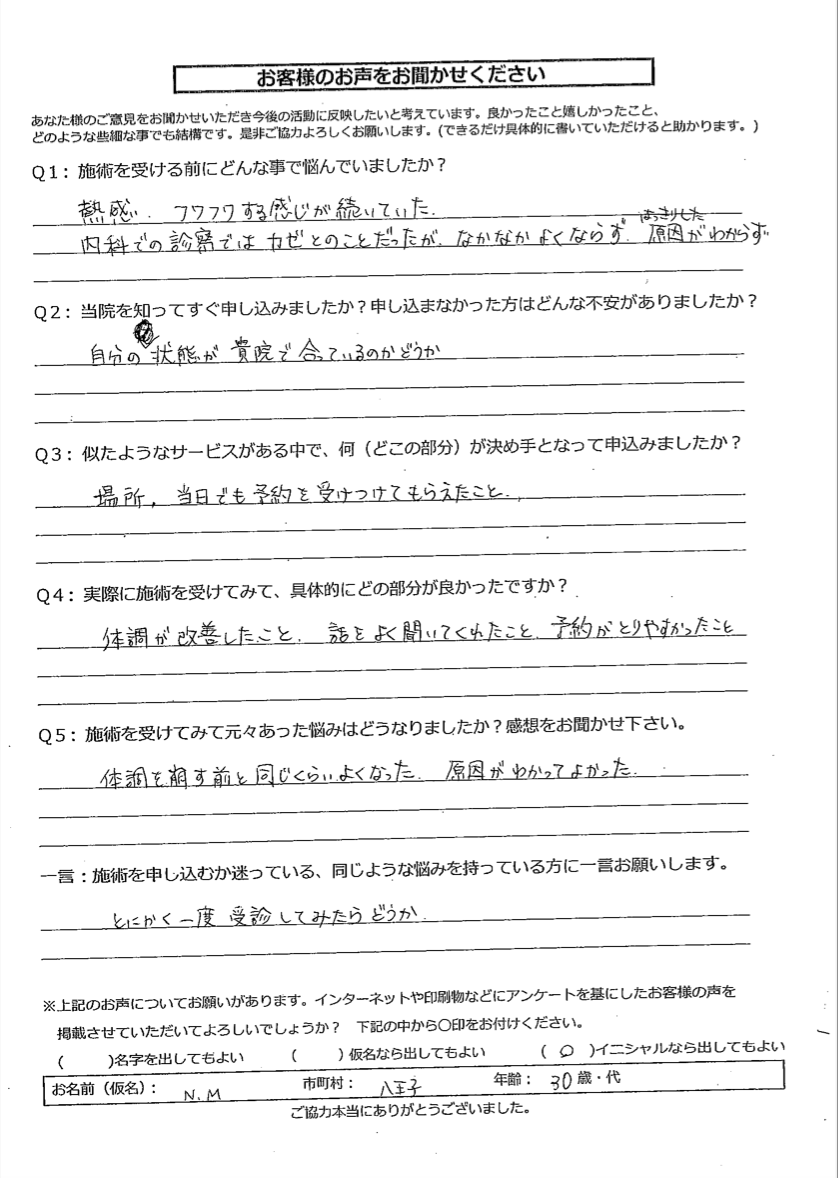 お客様のお声をお聞かせください
あなた様のご意見をお聞かせいただき今後の活動に反映したいと考えています。良かったこと嬉しかったこと、
どのような些細な事でも結構です。是非ご協力よろしくお願いします。(できるだけ具体的に書いていただけると助かります。)
Q1：施術を受ける前にどんな事で悩んでいましたか？
熱感、フワフワする感じが続いていた。
内科での診察ではカゼとのことだったが、なかなかよくならず、はっきりした原因がわからず
Q2：当院を知ってすぐ申し込みましたか？申し込まなかった方はどんな不安がありましたか？
自分の状態が貴院で合っているのかどうか
Q3：似たようなサービスがある中で、何（どこの部分）が決め手となって申込みましたか？
場所，当日でも予約を受けつけてもらえたこと。
Q4：実際に施術を受けてみて、具体的にどの部分が良かったですか？
体調が改善したこと、話をよく聞いてくれたこと、予約がとりやすかったこと
Q5：施術を受けてみて元々あった悩みはどうなりましたか？感想をお聞かせ下さい。
体調を崩す前と同じくらいよくなった。原因がわかってよかった。
一言：施術を申し込むか迷っている、同じような悩みを持っている方に一言お願いします。
とにかく一度受診してみたらどうか。
※上記のお声についてお願いがあります。インターネットや印刷物などにアンケートを基にしたお客様の声を
掲載させていただいてよろしいでしょうか？　下記の中から〇印をお付けください。
(　　)名字を出してもよい　　(　　)仮名なら出してもよい　　(　○　)イニシャルなら出してもよい
お名前（仮名）： N.M　市町村： 八王子　年齢： 30歳・代
ご協力本当にありがとうございました。